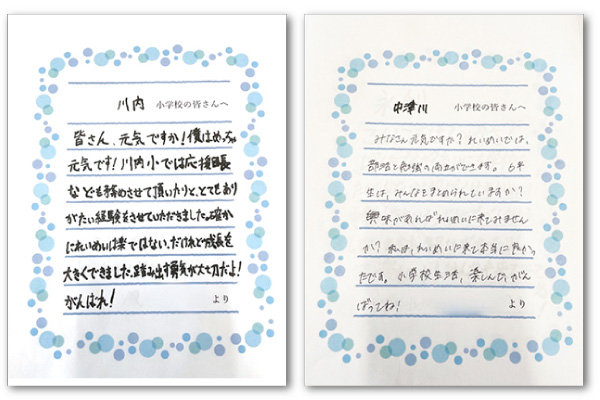 川内 小学校の皆さんへ
皆さん、元気ですか!僕はめっちゃ
元気です!川内小では応援団長
なども務めさせて頂いたりと、とてもあり
がたい経験をさせていただきました。確か
にれいめいは楽ではない、だけれど成長を
大きくできました。踏み出す勇気が大切だよ!
がんばれ! より
中津川 小学校の皆さんへ
みなさん元気ですか?れいめいでは、
部活と勉強の両立ができます。6年
生は、みんなをまとめられていますか?
興味があればれいめいに来てみません
か?私は、れいめいに来て本当に良かっ
たです。小学校生活、楽しんで、がん
ばってね! より